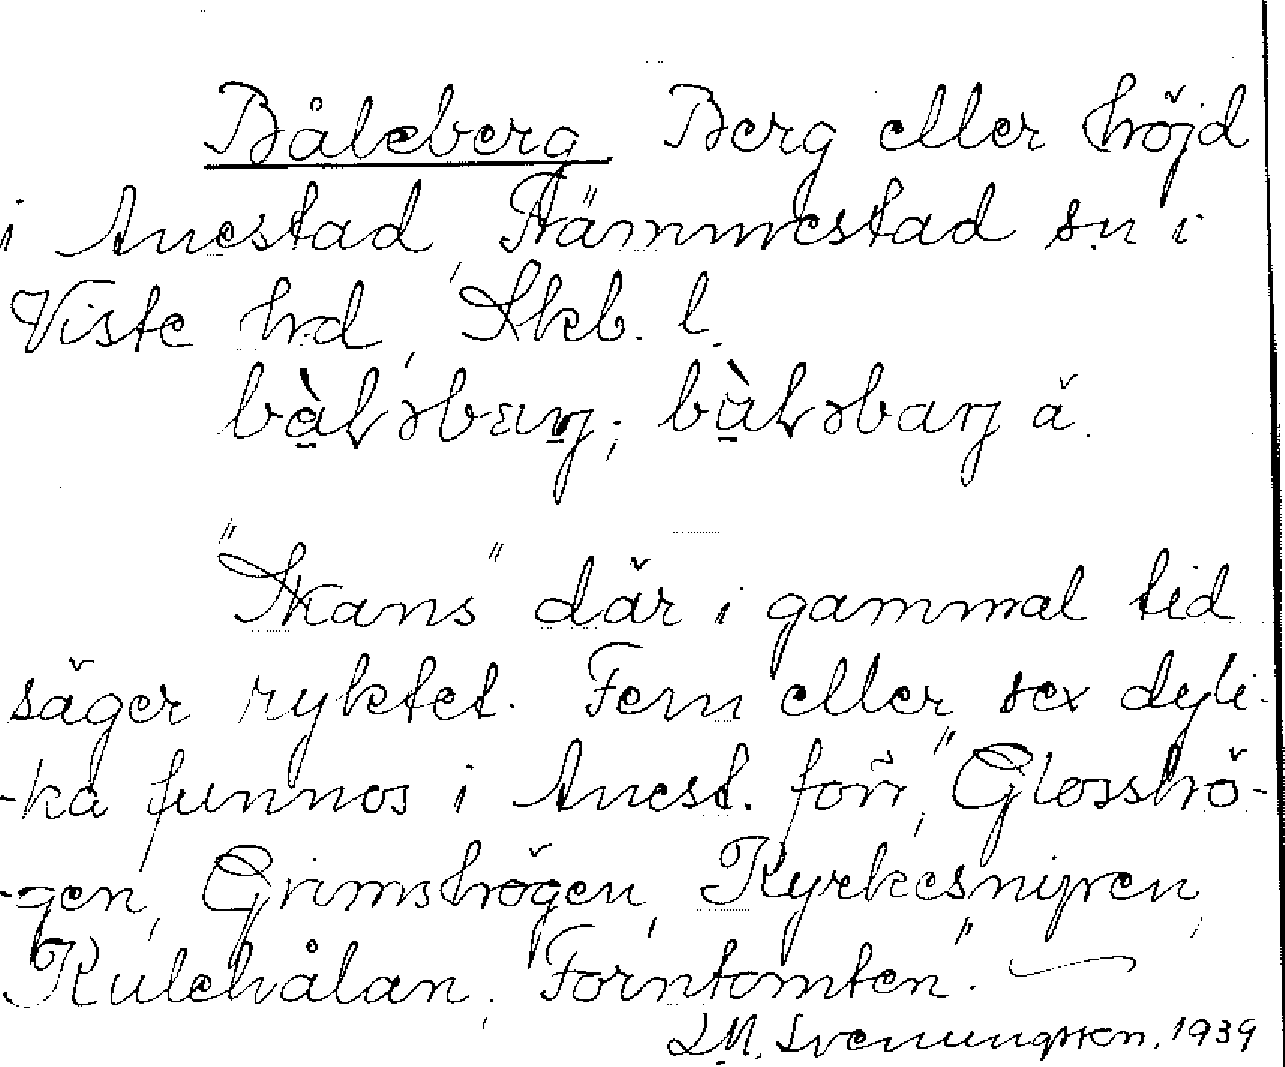 Båleberg Berg eller höjd
i Anestad, Främmestad sn i
Viste hd, Skbg. l.
bàLəbærj; bàLəbarj ä.
"Skans" där i gammal tid
säger ryktet. Fem eller sex dyli-
-ka funnos i Anest. förr, "Glosshö-
-gen, Grimshögen, Kyrkesnipen,
Kulehålan, Forntomten".
L.M. Svenungsson. 1939